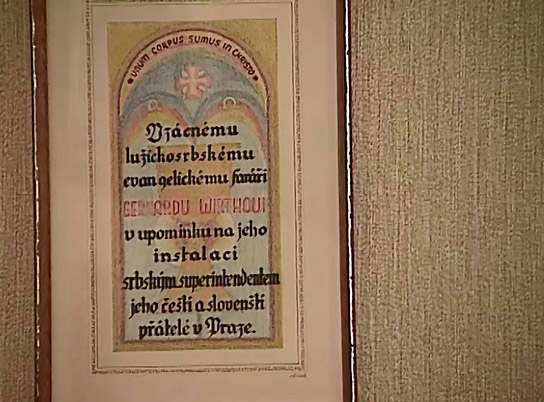 UNUM CORPUS SUMUS IN CHRISTO
Vzácnému
lužickosrbskému
evangelickému faráři
GERHARDU WIRTHOVI
v upomínku na jeho
instalaci
srbským superintendentem
jeho čeští a slovenští
přátelé v Praze.